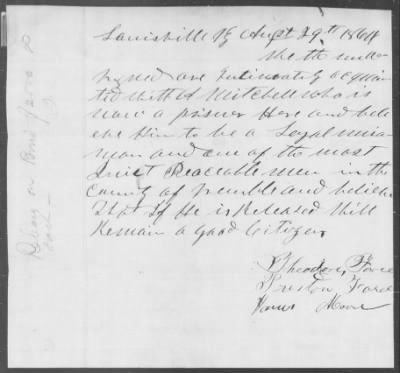 Louisville Ky Augst 29th 1864
We the under
signed are Intimately acquain
ted with A Mitchell who is
now a prisner Here and belie
eve Him to be a Loyal union
man and one of the most
Quiet Peaceable men in the
County of Trimble and believe
That If He is Released Will
Remain a Good Citizen
Theodore
Preston
Moore
on Bond $2000